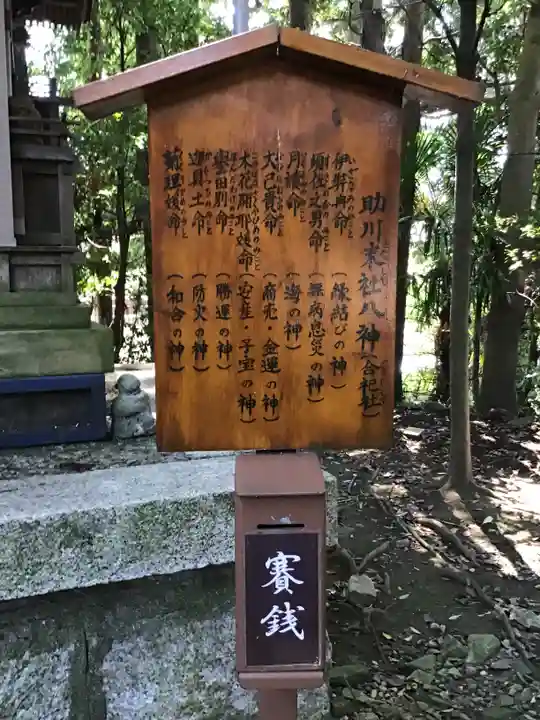 助川末社八神(合祀社)
伊弉冉命(縁結びの神)
須佐之男命(無病息災の神)
月讀命(海の神)
大己貴命(商売・金運の神)
木花開耶姫命(安産・子宝の神)
誉田別命(勝運の神)
迦具土命(防火の神)
菊理媛命(和合の神)
賽銭